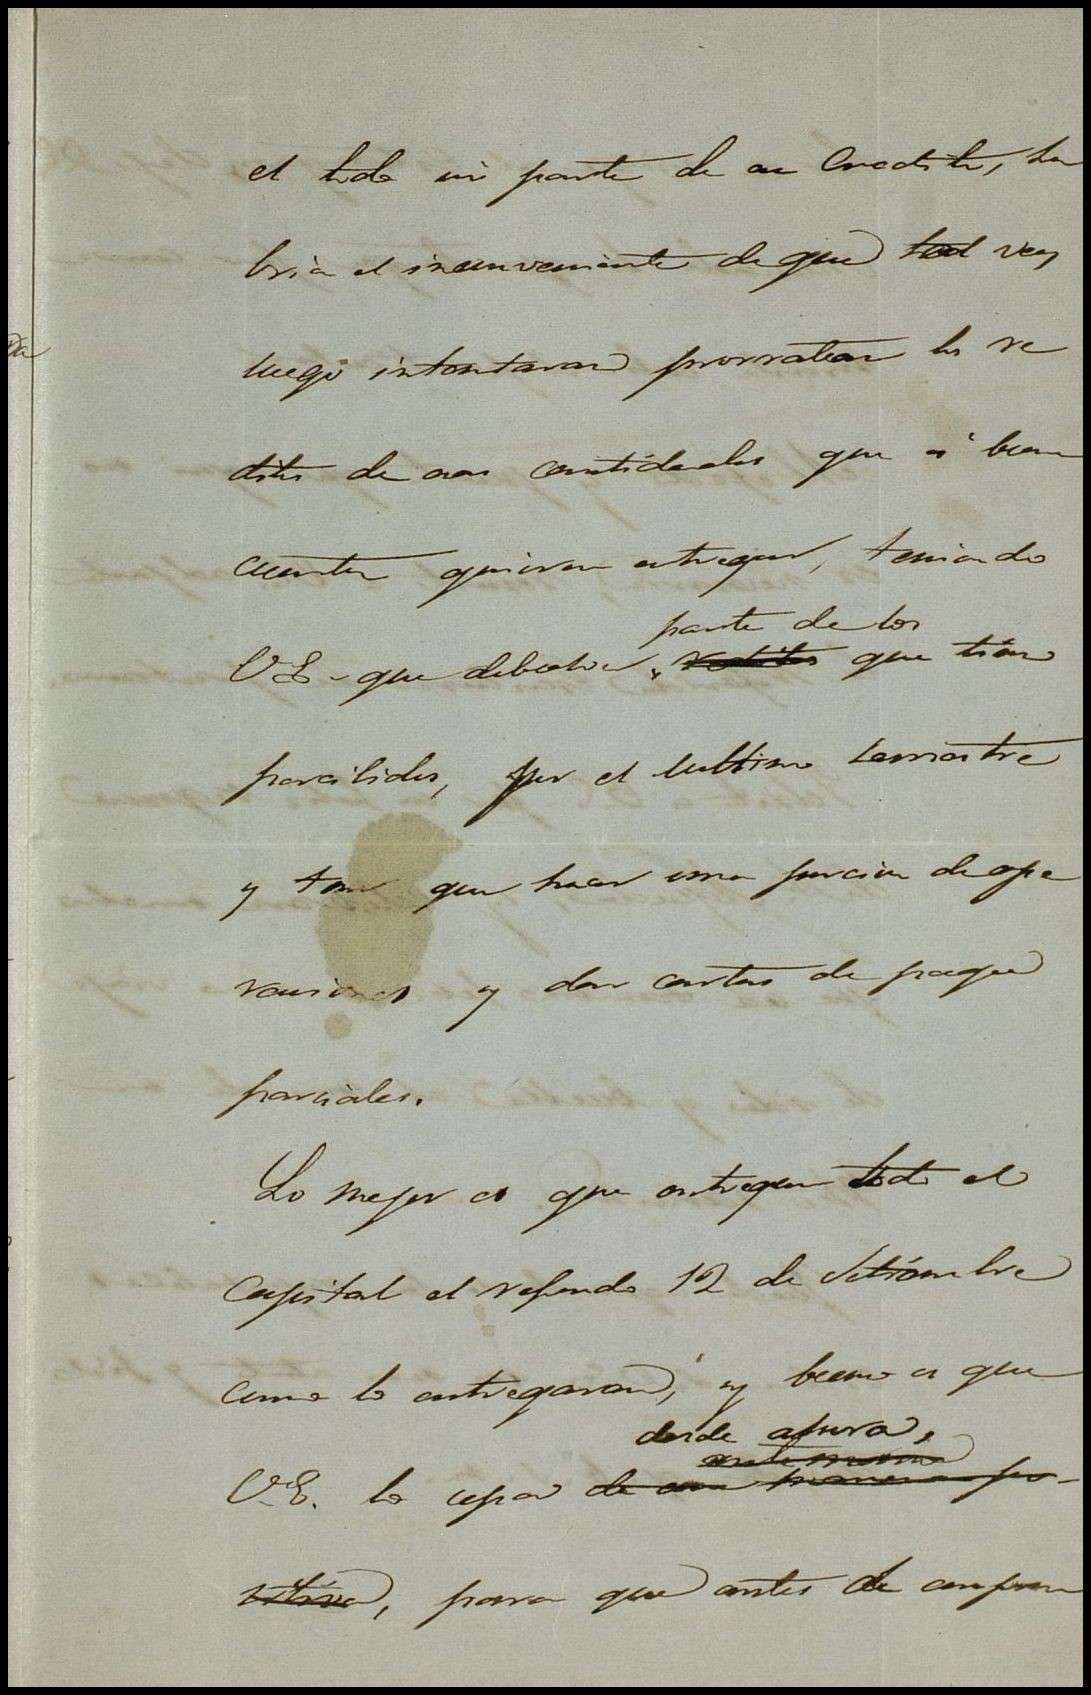 el todo ni parte de su Credito, ha
bria el inconveniente de que tod vez
luego intentaran prorratear los re
ditos de esas cantidades que á buena
cuenta quieran entregar, teniendo
parte de los
V.E. que debolver, reditos que tiene
percibidos, por el ulltimo semestre
y tener que hacer una porcion de ope
raciones y dar cartas de pago
parciales.
Lo mejor es que entreguen todo el
Capital el referido 12 de Setiembre
como lo entregaran, y bueno es que
desde ahora,
V.E. lo sepa de una manera po-
sitiva, para que antes de